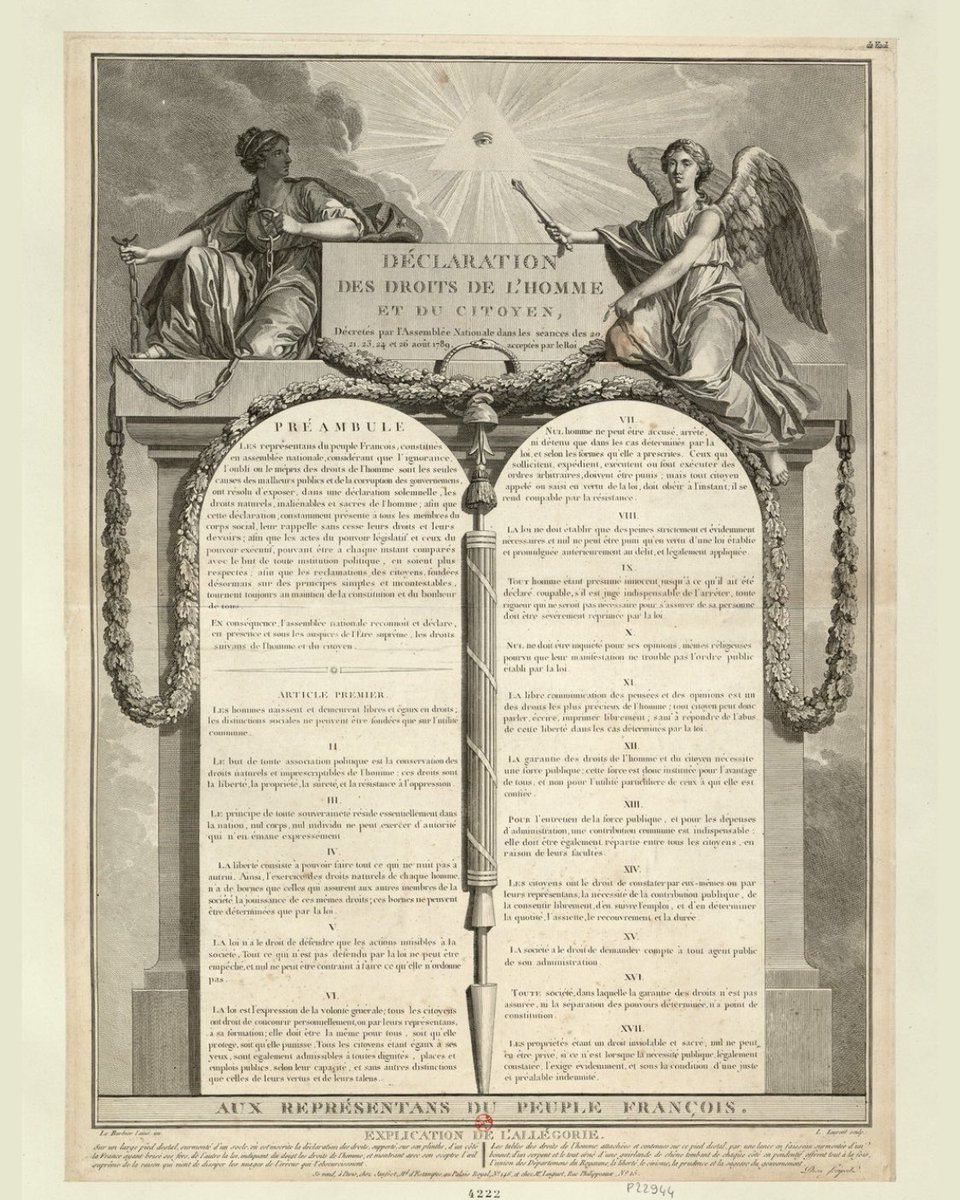 de Vinck.
DÉCLARATION
DES DROITS DE L'HOMME
ET DU CITOYEN,
Décretés par l'Assemblée Nationale dans les séances des 20
21, 23, 24 et 26 août 1789, acceptés par le Roi
PRÉAMBULE
LES représentans du peuple Francois, constitués
en assemblée nationale, considérant que l'ignorance,
l'oubli ou le mépris des droits de l'homme sont les seules
causes des malheurs publics et de la corruption des gouvernemens,
ont résolu d'exposer, dans une déclaration solemnelle, les
droits naturels, inaliénables et sacrés de l'homme; afin que
cette déclaration, constamment présente à tous les membres du
corps social, leur rappelle sans cesse leurs droits et leurs
devoirs; afin que les actes du pouvoir législatif et ceux du
pouvoir exécutif, pouvant être à chaque instant comparés
avec le but de toute institution politique, en soient plus
respectés; afin que les reclamations des citoyens, fondées
désormais sur des principes simples et incontestables,
tournent toujours au maintien de la constitution et du bonheur
de tous.
EN conséquence, l'assemblée nationale reconnoit et déclare,
en presence et sous les auspices de l'Être suprême, les droits
suivans de l'homme et du citoyen.
ARTICLE PREMIER.
LES hommes naissent et demeurent libres et égaux en droits;
les distinctions sociales ne peuvent être fondées que sur l'utilité
commune.
II.
LE but de toute association politique est la conservation des
droits naturels et imprescriptibles de l'homme; ces droits sont
la liberté, la propriété, la sureté, et la résistance à l'oppression.
III.
LE principe de toute souveraineté réside essentiellement dans
la nation, nul corps, nul individu ne peut exercer d'autorité
qui n'en émane expressément.
IV.
LA liberté consiste à pouvoir faire tout ce qui ne nuit pas à
autrui. Ainsi, l'exercice des droits naturels de chaque homme,
n'a de bornes que celles qui assurent aux autres membres de la
société la jouissance de ces mêmes droits; ces bornes ne peuvent
être déterminées que par la loi.
V.
LA loi n'a le droit de défendre que les actions nuisibles à la
société. Tout ce qui n'est pas défendu par la loi ne peut être
empêché, et nul ne peut être contraint à faire ce qu'elle n'ordonne
pas.
VI.
LA loi est l'expression de la volonté générale; tous les citoyens
ont droit de concourir personnellement, ou par leurs représentans,
à sa formation; elle doit être la même pour tous, soit qu'elle
protege, soit qu'elle punisse. Tous les citoyens étant égaux à ses
yeux, sont également admissibles à toutes dignités, places et
emplois publics, selon leur capacité, et sans autres distinctions
que celles de leurs vertus et de leurs talens.
VII.
NUL homme ne peut être accusé, arrêté,
ni détenu que dans les cas déterminés par la
loi, et selon les formes qu'elle a prescrites. Ceux qui
sollicitent, expédient, exécutent ou font exécuter des
ordres arbitraires, doivent être punis; mais tout citoyen
appelé ou saisi en vertu de la loi, doit obéir à l'instant, il se
rend coupable par la résistance.
VIII.
LA loi ne doit établir que des peines strictement et évidemment
nécessaires et nul ne peut être puni qu'en vertu d'une loi établie
et promulguée antérieurement au délit, et légalement appliquée.
IX.
TOUT homme étant présumé innocent jusqu'à ce qu'il ait été
déclaré coupable, s'il est jugé indispensable de l'arrêter, toute
rigueur qui ne seroit pas nécessaire pour s'assurer de sa personne
doit être sévèrement réprimée par la loi.
X.
NUL ne doit être inquiété pour ses opinions, mêmes religieuses
pourvu que leur manifestation ne trouble pas l'ordre public
établi par la loi.
XI.
LA libre communication des pensées et des opinions est un
des droits les plus précieux de l'homme; tout citoyen peut donc
parler, écrire, imprimer librement; sauf à répondre de l'abus
de cette liberté dans les cas déterminés par la loi.
XII.
LA garantie des droits de l'homme et du citoyen nécessite
une force publique; cette force est donc instituée pour l'avantage
de tous, et non pour l'utilité particulière de ceux à qui elle est
confiée.
XIII.
POUR l'entretien de la force publique, et pour les dépenses
d'administration, une contribution commune est indispensable;
elle doit être également répartie entre tous les citoyens, en
raison de leurs facultés.
XIV.
LES citoyens ont le droit de constater par eux-mêmes ou par
leurs représentans, la nécessité de la contribution publique, de
la consentir librement, d'en suivre l'emploi, et d'en déterminer
la quotité, l'assiette, le recouvrement et la durée.
XV.
LA société a le droit de demander compte à tout agent public
de son administration.
XVI.
TOUTE société, dans laquelle la garantie des droits n'est pas
assurée, ni la séparation des pouvoirs déterminée, n'a point de
constitution.
XVII.
LES propriétés étant un droit inviolable et sacré, nul ne peut
en être privé, si ce n'est lorsque la nécessité publique, légalement
constatée, l'exige évidemment, et sous la condition d'une juste
et préalable indemnité.
AUX REPRÉSENTANS DU PEUPLE FRANÇOIS.
Le Barbier l'ainé inv.
L. Laurent sculp.
EXPLICATION DE L'ALLÉGORIE.
Sur un large pied destal, surmonté d'un socle, où est inscrite la déclaration des droits, supporté, sur son plinthe, d'un côté
la France ayant brisé ses fers, de l'autre la loi, indiquant du doigt les droits de l'homme, et montrant avec son sceptre l'œil
suprême de la raison qui vient de dissiper les nuages de l'erreur qui l'obscurcissoient.
Les tables des droits de l'Homme, attachées et contenues sur ce pied destal, par une lance en faisceau surmontée d'un
bonnet, d'un serpent et le tout orné d'une guirlande de chêne tombant de chaque côté en pendentif, offrent tout à la fois,
l'union des Départemens du Royaume, la liberté, le civisme, la prudence et la sagesse du gouvernement.
Se vend, à Paris, chez Jaufret, Md. d'Estampes, au Palais Royal, No. 146, et chez Mr. Laurent, Rue
4222
P22944